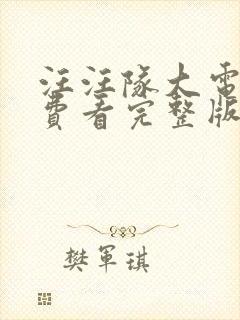 汪汪隊大電
費看完整版
樊軍琪